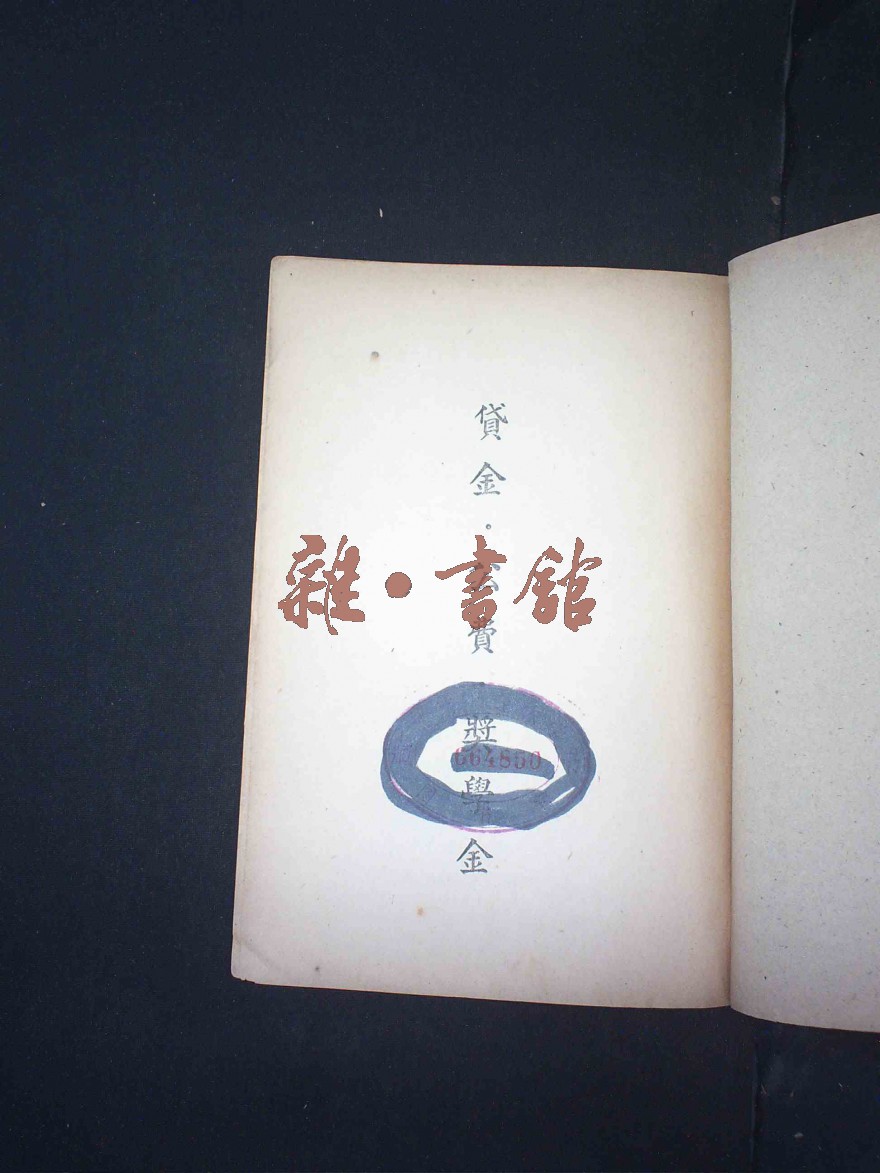 貸金·公費·獎學金
雜·書館
664850